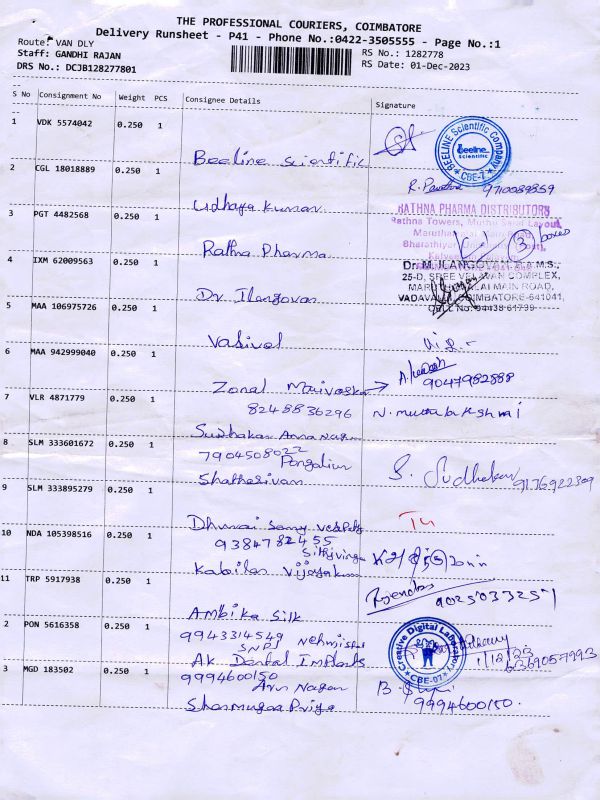 THE PROFESSIONAL COURIERS, COIMBATORE
Delivery Runsheet - P41 - Phone No.:0422-3505555 - Page No.:1
Route: VAN DLY
Staff: GANDHI RAJAN
RS No.: 1282778
DRS No.: DCJB128277801
RS Date: 01-Dec-2023
S No Consignment No Weight PCS Consignee Details Signature
1 VDK 5574042 0.250 1
Beeline Scientific
BEELINE Scientific Company
Beeline
Scientific
CBE-7
2 CGL 18018889 0.250 1
9710089859
Udhaya Kumar
3 PGT 4482568 0.250 1
RATHNA PHARMA DISTRIBUTORS
Rathna Towers,
3 boxes
Rathna Pharma
4 IXM 62009563 0.250 1
Dr. M. ILANGOVAN
25-D, SREE VELAVAN COMPLEX,
MAIN ROAD,
COIMBATORE-641041,
CELL NO: 94438 61739
Dr. Ilangovan
5 MAA 106975726 0.250 1
Vadivel
6 MAA 942999040 0.250 1
Zonal
9047982888
7 VLR 4871779 0.250 1
8248836296
Sudhakar Anna Nagar
8 SLM 333601672 0.250 1
7904508022
S. Sudhakar
Shathasivam
9 SLM 333895279 0.250 1
10 NDA 105398516 0.250 1
9384782455
Kabilas Vijayakum
11 TRP 5917938 0.250 1
9025033257
Ambika Silk
2 PON 5616358 1
9943314549
Creative Digital Laboratory
CBE-07
1/12/23
Ak Dental Implants
3 MGD 183502 0.250 1
9994600150
Arun Nagar
Shanmugaa Priya
9994600150.